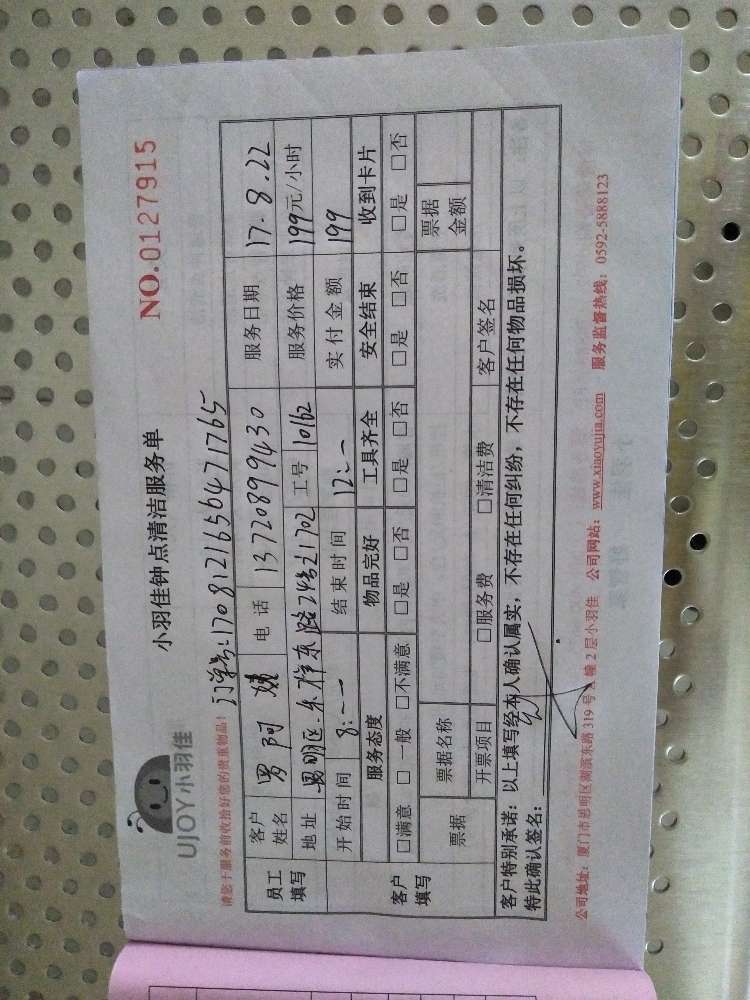 UJOY小羽佳
小羽佳钟点清洁服务单
NO.0127915
请您于服务前收拾好您的贵重物品! 订单号:170812165647 1765
员工填写 客户姓名 罗阿姨 电话 13720899430 服务日期 17.8.22
地址 东路24号21702 工号 10162 服务价格 199元/小时
开始时间 8:-- 结束时间 12:-- 实付金额 199
客户填写 服务态度 物品完好 工具齐全 安全结束 收到卡片
□满意 □一般 □不满意 □是 □否 □是 □否 □是 □否 □是 □否
票据 票据名称 票据金额
开票项目 □服务费 □清洁费 客户签名
客户特别承诺:以上填写经本人确认属实,不存在任何纠纷,不存在任何物品损坏。
特此确认签名:
公司地址:厦门市思明区湖滨东路319号 幢2层小羽佳 公司网站:www.xiaoyujia.com 服务监督热线:0592-5888123